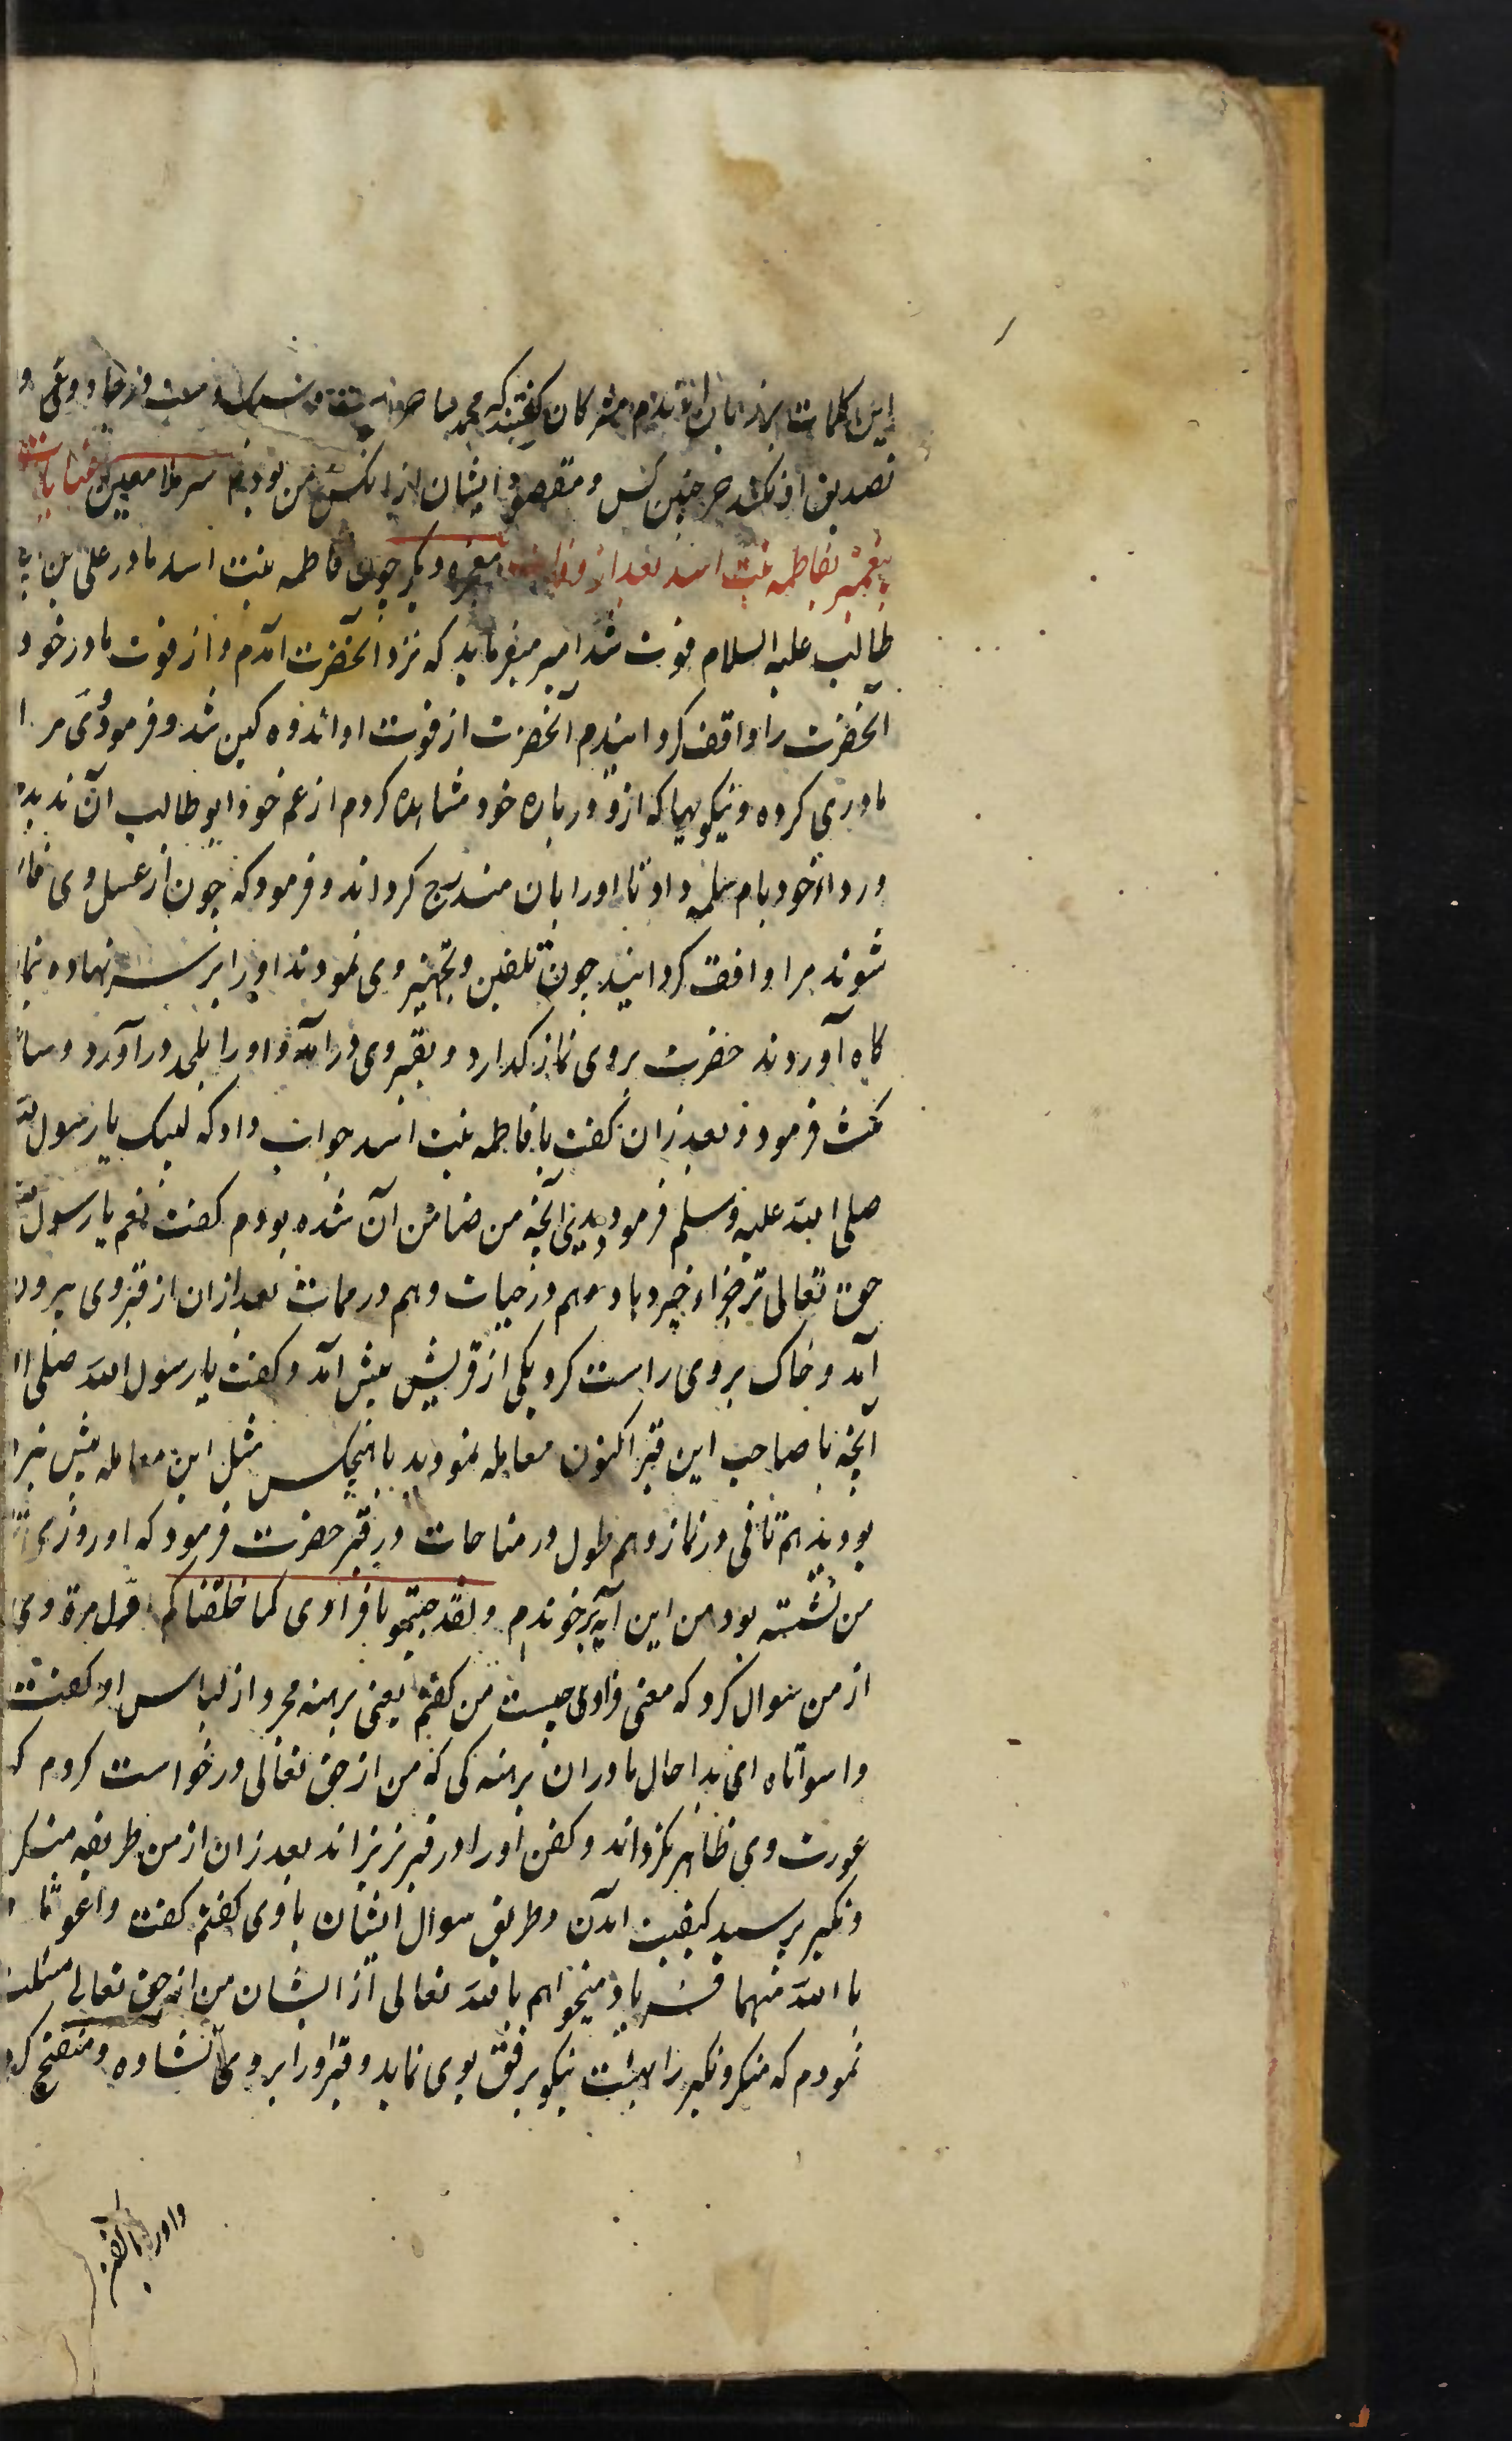 این کلمات بزبان راندم مشرکان گفتند که محمد ساحر است و
تصدیق او نکند جز چنین کس و مقصود ایشان ازان کس من بودم سر ملا معین
پیغمبر بفاطمه بنت اسد بعد از معجزه دیگر چون فاطمه بنت اسد مادر علی بن
طالب علیه السلام فوت شد امیر میفرماید که نزد آنحضرت آمدم و از فوت مادر خود
آنحضرت را واقف کردانیدم آنحضرت از فوت او اندوه کین شد و فرمود وی مرا
مادری کرده و نیکوییها که ازو درباره خود مشاهده کردم از عم خود ابو طالب آن ندیدم
و رداء خود بام سلمه داد تا او را بان مندرج کرداند و فرمود که چون از غسل وی
شوند مرا واقف کردانید چون تکفین و تجهیز وی نمودند او را بر سر نهاده
کاه آوردند حضرت بروی نماز کذارد و بقبر وی درآمد و او را بلحد درآورد و
مکث فرمود و بعد زان گفت یا فاطمه بنت اسد جواب داد که لبیک یا رسول الله
صلی الله علیه و سلم فرمود دیدی آنچه من ضامن آن شده بودم گفت نعم یا رسول الله
حق تعالی ترا جزاء خیر دهاد هم در حیات و هم در ممات بعد ازان از قبر وی بیرون
آمد و خاک بروی راست کرد یکی از قریش پیش آمد و گفت یا رسول الله صلی
آنچه با صاحب این قبر اکنون معامله نمودید با هیچکس مثل این معامله پیش
بودید هم تانی در نماز و هم طول در مناجات در قبر حضرت فرمود که او روزی
من نشسته بود من این آیه بر خوندم و لقد جئتمونا فرادی کما خلقناکم اول مرة وی
از من سوال کرد که معنی فرادی چیست من گفتم یعنی برهنه مجرد از لباس او گفت
وا سوأتاه ای بدا حال ما دران برهنه کی که من از حق تعالی درخواست کردم که
عورت وی ظاهر نکرداند و کفن او را در قبر نریزاند بعد زان از من طریقه منکر
و نکیر پرسید کیفیت آمدن و طریق سوال ایشان با وی گفتم گفت وا غوثا
با الله منهما فریاد میخواهم با الله تعالی از ایشان من از حق تعالی مسئلت
نمودم که منکر و نکیر را بهیئت نیکو برفق بوی نماید و قبر او را بروی کشاده و منفتح کرد